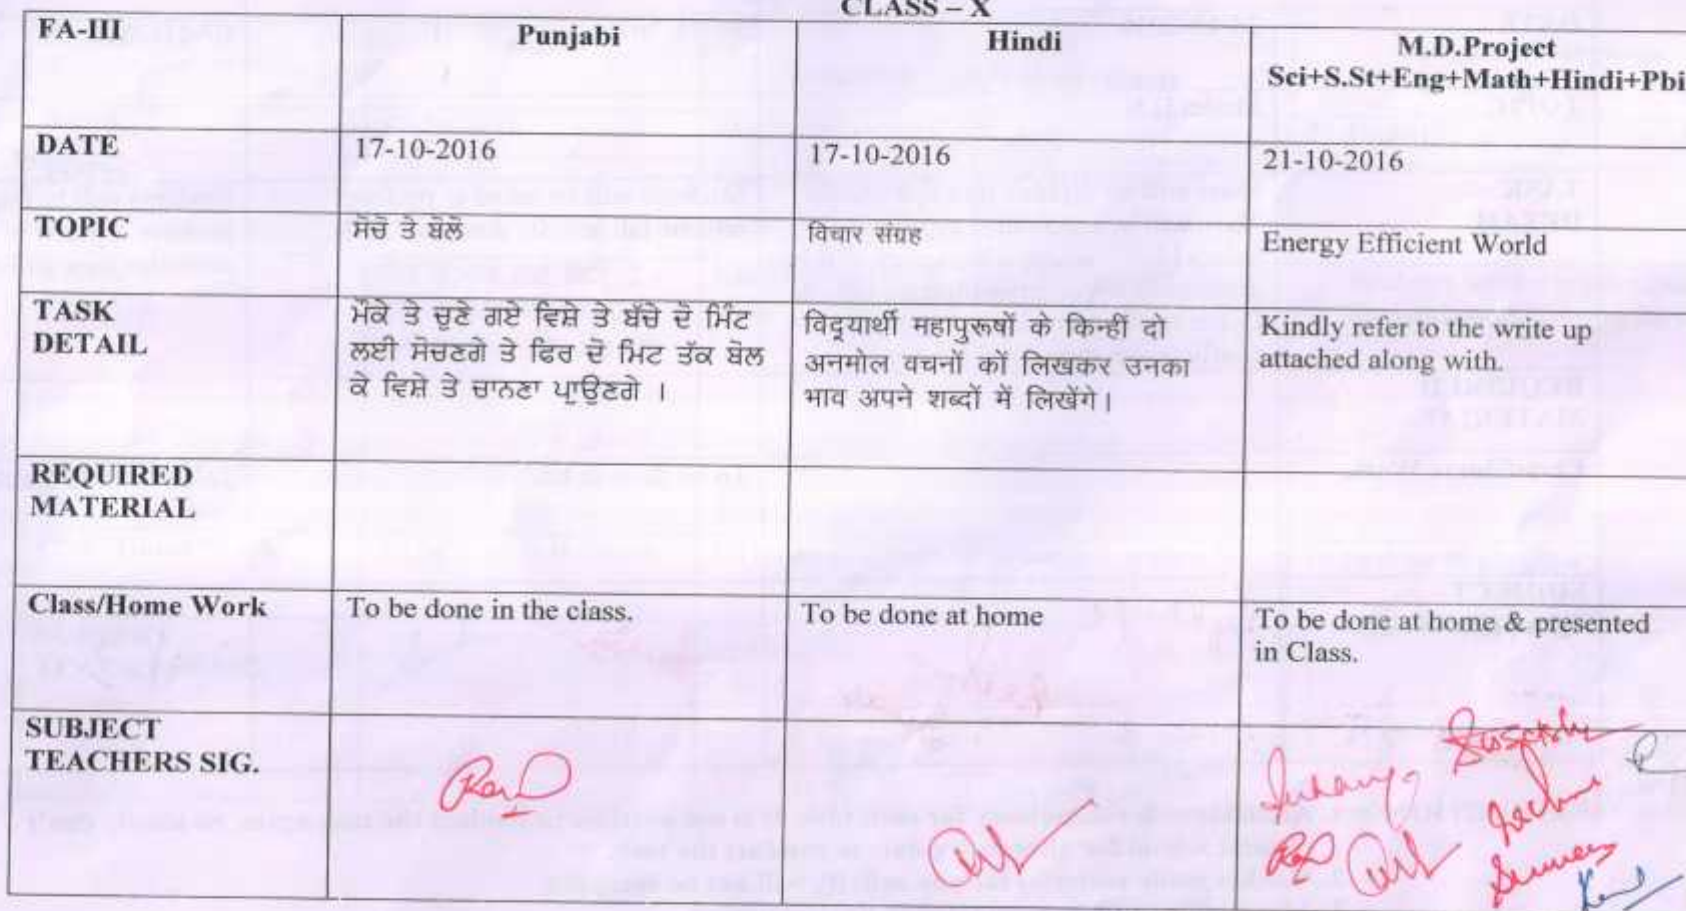 CLASS – X
FA-III
Punjabi
Hindi
M.D.Project
Sci+S.St+Eng+Math+Hindi+Pbi
DATE
17-10-2016
17-10-2016
21-10-2016
TOPIC
ਸੋਚੋ ਤੇ ਬੋਲੋ
विचार संग्रह
Energy Efficient World
TASK
DETAIL
ਮੌਕੇ ਤੇ ਚੁਣੇ ਗਏ ਵਿਸ਼ੇ ਤੇ ਬੱਚੇ ਦੋ ਮਿੰਟ
ਲਈ ਸੋਚਣਗੇ ਤੇ ਫਿਰ ਦੋ ਮਿਟ ਤੱਕ ਬੋਲ
ਕੇ ਵਿਸ਼ੇ ਤੇ ਚਾਨਣਾ ਪਾ੍ਉਣਗੇ ।
विद्यार्थी महापुरूषों के किन्हीं दो
अनमोल वचनों कों लिखकर उनका
भाव अपने शब्दों में लिखेंगे।
Kindly refer to the write up
attached along with.
REQUIRED
MATERIAL
Class/Home Work
To be done in the class.
To be done at home
To be done at home & presented
in Class.
SUBJECT
TEACHERS SIG.